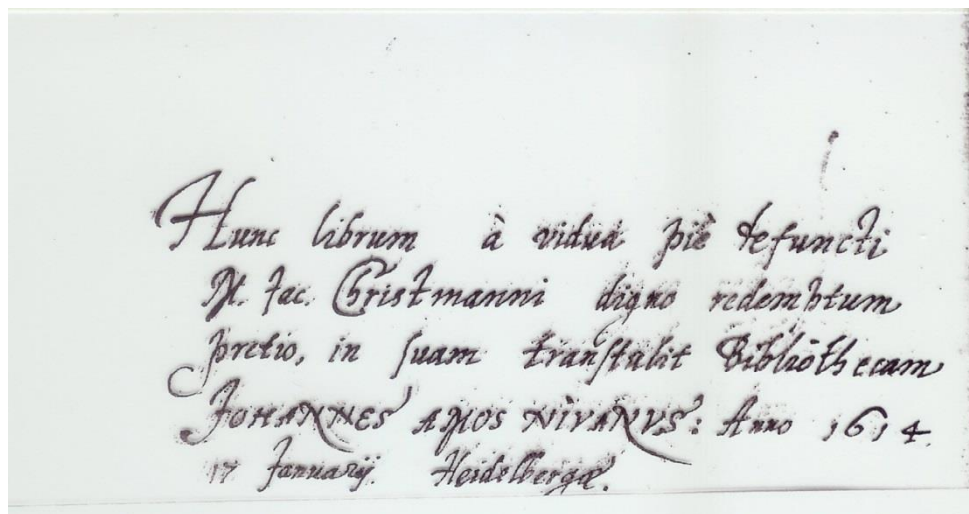 Hunc librum à vidua piè defuncti
M. Jac. Christmanni digno redemptum
pretio, in suam transtulit Bibliothecam
JOHANNES AMOS NIVANUS: Anno 1614
17 Januarij. Heidelbergæ.